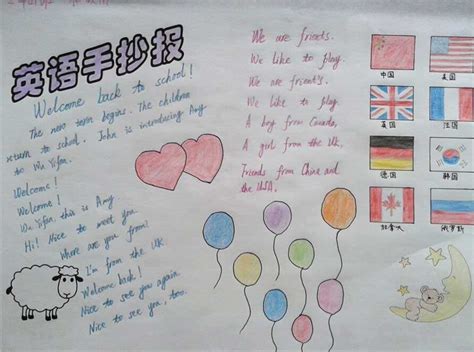 英语手抄报
Welcome back to school!
The new term begins. The children
return to school. John is introducing Amy
to Wu Yifan.
Welcome!
Welcome!
Wu Yifan, this is Amy
Hi! Nice to meet you.
Where are you from?
I'm from the UK
Welcome back!
Nice to see you again.
Nice to see you, too.
We are friends.
We like to play.
We are friends.
We like to play.
A boy from Canada,
A girl from the UK,
Friends from China and
the USA.
中国
美国
英国
法国
德国
韩国
加拿大
俄罗斯